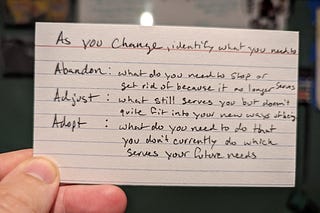 As you change, identify what you need to
Abandon: what do you need to stop or
get rid of because it no longer serves
Adjust: what still serves you but doesn't
quite fit into your new ways of being
Adopt: what do you need to do that
you don't currently do which
serves your future needs